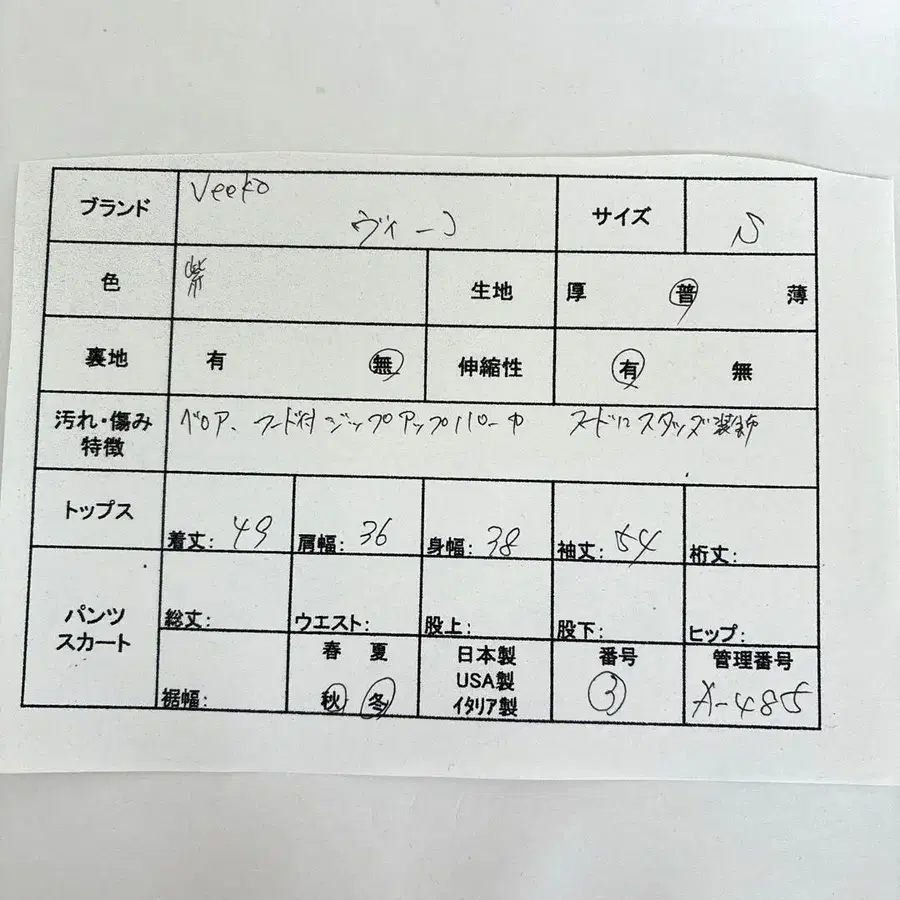 ブランド Veeko ヴィーコ サイズ S
色 紫 生地 厚 普 薄
裏地 有 無 伸縮性 有 無
汚れ・傷み 特徴 ベロア、フード付ジップアップパーカ フードにスタッズ装飾
トップス 着丈: 49 肩幅: 36 身幅: 38 袖丈: 54 裄丈:
パンツ スカート 総丈: ウエスト: 股上: 股下: ヒップ:
裾幅: 春 夏 秋 冬 日本製 USA製 イタリア製 番号 ③ 管理番号 A-485